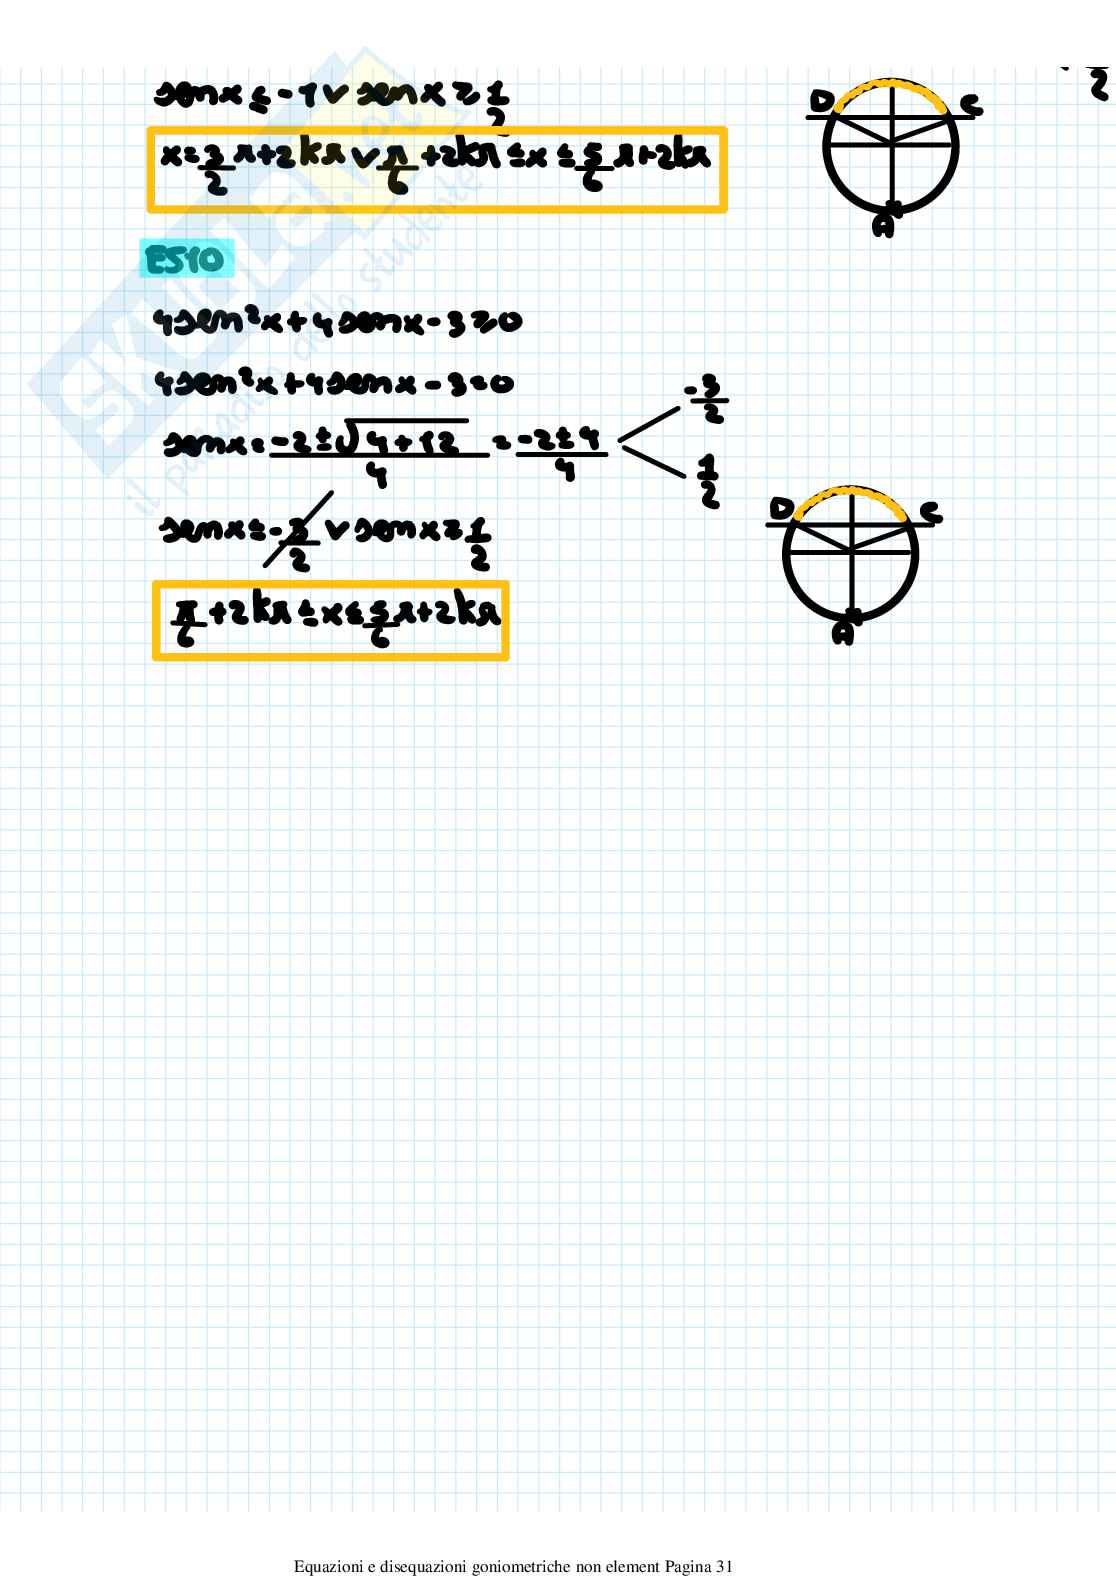 senx ≤ -1 ∨ senx ≥ 1/2
x = 3/2 π + 2kπ ∨ π/6 + 2kπ ≤ x ≤ 5/6 π + 2kπ
D C
A
ES10
4sen²x + 4senx - 3 ≥ 0
4sen²x + 4senx - 3 = 0
senx = -2 ± √4+12 / 4 = -2 ± 4 / 4
-3/2
1/2
senx ≤ -3/2 ∨ senx ≥ 1/2
D C
A
π/6 + 2kπ ≤ x ≤ 5/6 π + 2kπ
SKUOLA.net
il paradiso dello studente
Equazioni e disequazioni goniometriche non element Pagina 31